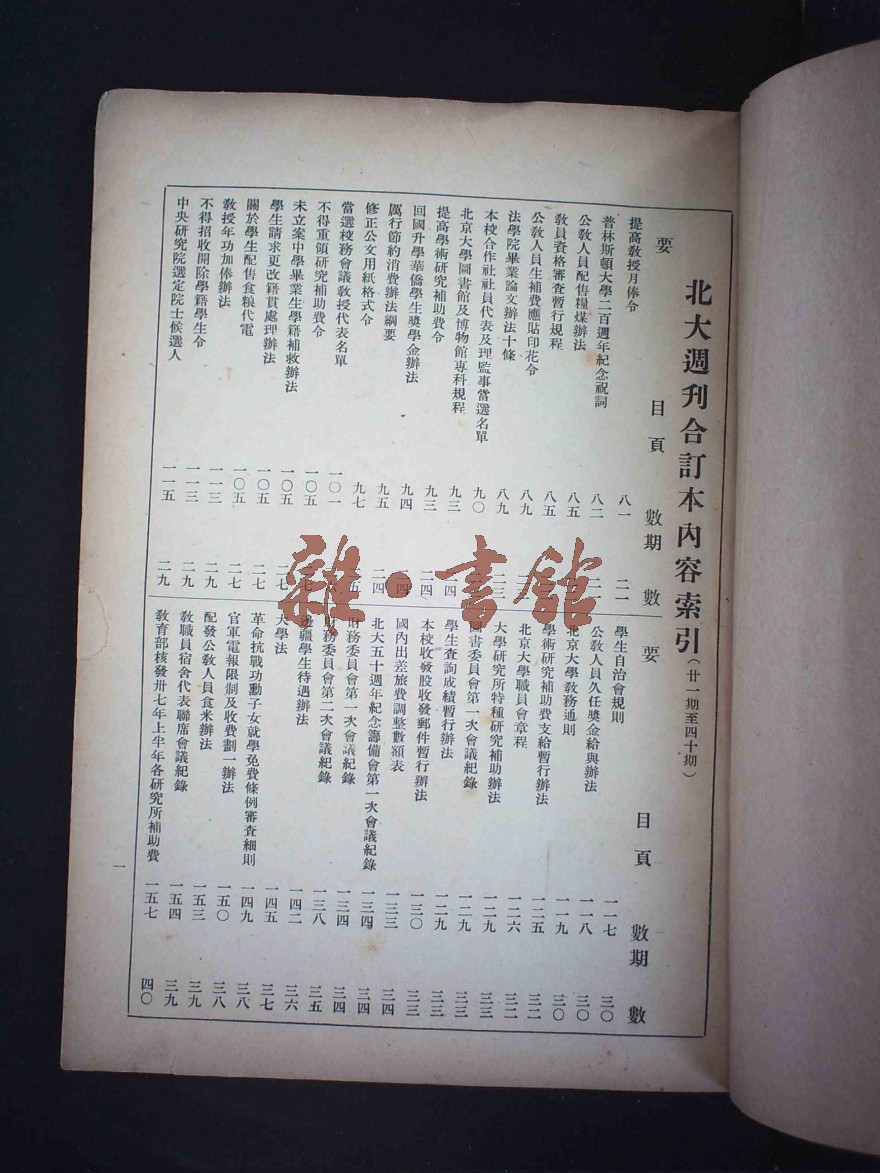 北大週刋合訂本內容索引(廿一期至四十期)
要目 頁數 期數
提高教授月俸令 八一 二一
普林斯頓大學二百週年紀念祝詞 八二
公教人員配售糧煤辦法 八五
教員資格審查暫行規程 八五
公教人員生補費應貼印花令 八九
法學院畢業論文辦法十條 八九 二三
本校合作社社員代表及理監事當選名單 九〇
北京大學圖書館及博物館專科規程 九三 二四
提高學術研究補助費令 九三 二四
回國升學華僑學生獎學金辦法 九四 二四
厲行節約消費辦法綱要 九五 二四
修正公文用紙格式令 九七
當選校務會議教授代表名單 一〇一
不得重領研究補助費令 一〇五
未立案中學畢業生學籍補救辦法 一〇五 二七
學生請求更改籍貫處理辦法 一〇五 二七
關於學生配售食粮代電 一〇五 二七
教授年功加俸辦法 一一三 二九
不得招收開除學籍學生令 一一三 二九
中央研究院選定院士候選人 一一五 二九
要目 頁數 期數
學生自治會規則 一一七 三〇
公教人員久任獎金給與辦法 一一八 三〇
北京大學教務通則 一一九 三〇
學術研究補助費支給暫行辦法 一二五 三二
北京大學職員會章程 一二六 三二
大學研究所特種研究補助辦法 一二九 三三
圖書委員會第一次會議紀錄 一二九 三三
學生查詢成績暫行辦法 一二九 三三
本校收發股收發郵件暫行辦法 一三〇 三三
國內出差旅費調整數額表 一三三 三四
北大五十週年紀念籌備會第一次會議紀錄 一三四 三四
財務委員會第一次會議紀錄 一三四 三四
財務委員會第二次會議紀錄 一三八 三五
邊疆學生待遇辦法 一四二 三六
大學法 一四五 三七
革命抗戰功勳子女就學免費條例審查細則 一四九 三八
官軍電報限制及收費劃一辦法 一五〇 三八
配發公教人員食米辦法 一五三 三九
教職員宿舍代表聯席會議紀錄 一五四 三九
教育部核發卅七年上半年各研究所補助費 一五七 四〇
一
雜·書館